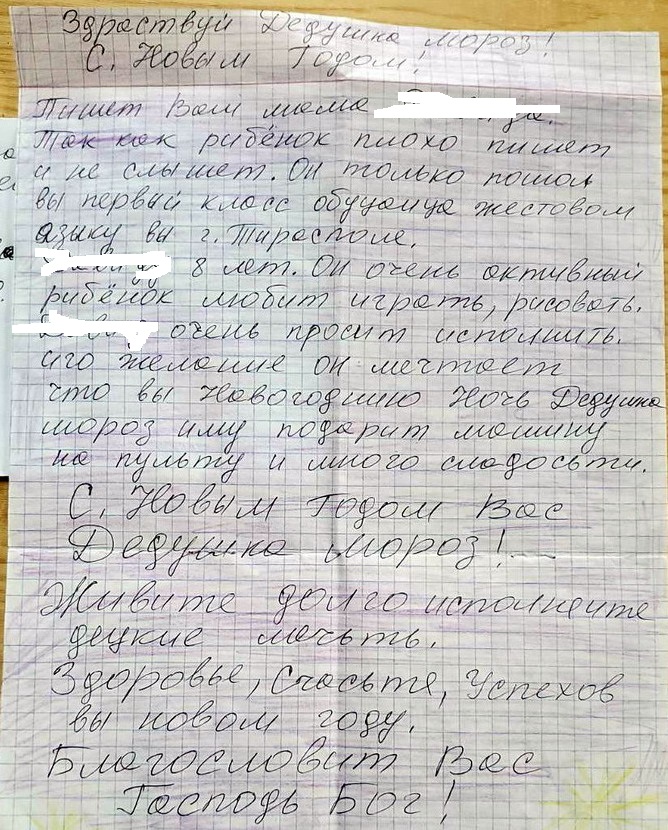 Здраствуй Дедушка мороз!
С. Новым Годом!
Пишет Вам мама
Так как рибёнок плохо пишет
и не слышет. Он только пошол
вы первый класс обуцаица жестовом
язику вы г. Тирасполе.
8 лет. Он очень активный
рибёнок любит играть, рисовать.
очень просит исполнить.
иго желание он мечтает
что вы Новогоднию Ночь Дедушка
мороз иму подарит машину
на пульту и много сладосьти.
С. Новым Годом Вас
Дедушка мороз!
Живите долго исполнеите
децкие мечьть.
Здоровье, Счасьте, Успехов
вы новом году.
Благословит Вас
Гасподь Бог!